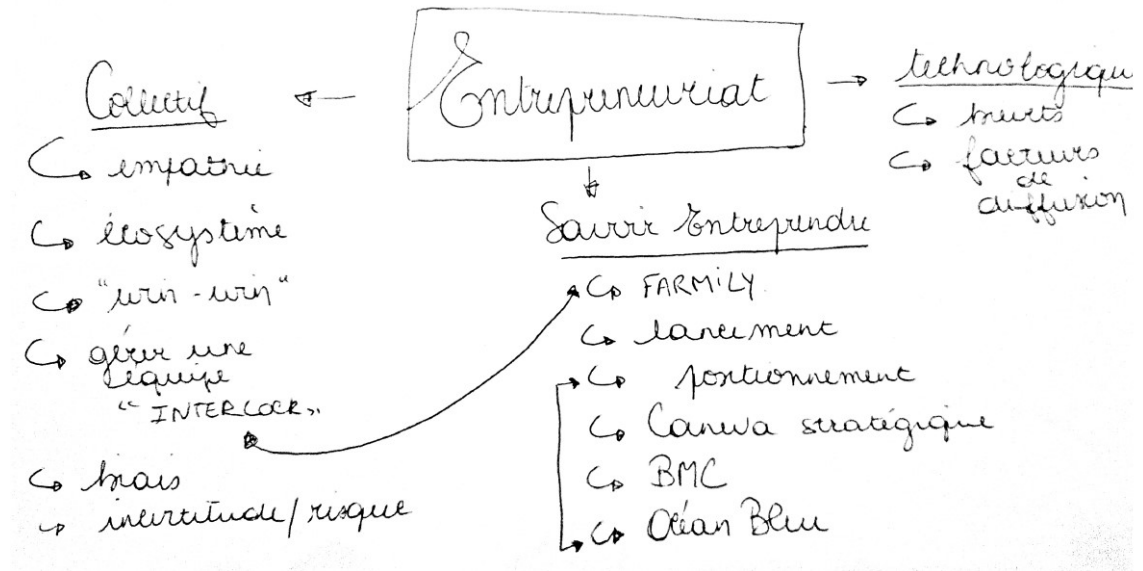 Entrepreneuriat
Collectif
empathie
écosystème
"win-win"
gérer une
équipe
"INTERLOCK"
biais
incertitude/risque
Savoir Entreprendre
FARMILY
lancement
positionnement
Caneva stratégique
BMC
Océan Bleu
technologiqu
facteurs
de
diffusion